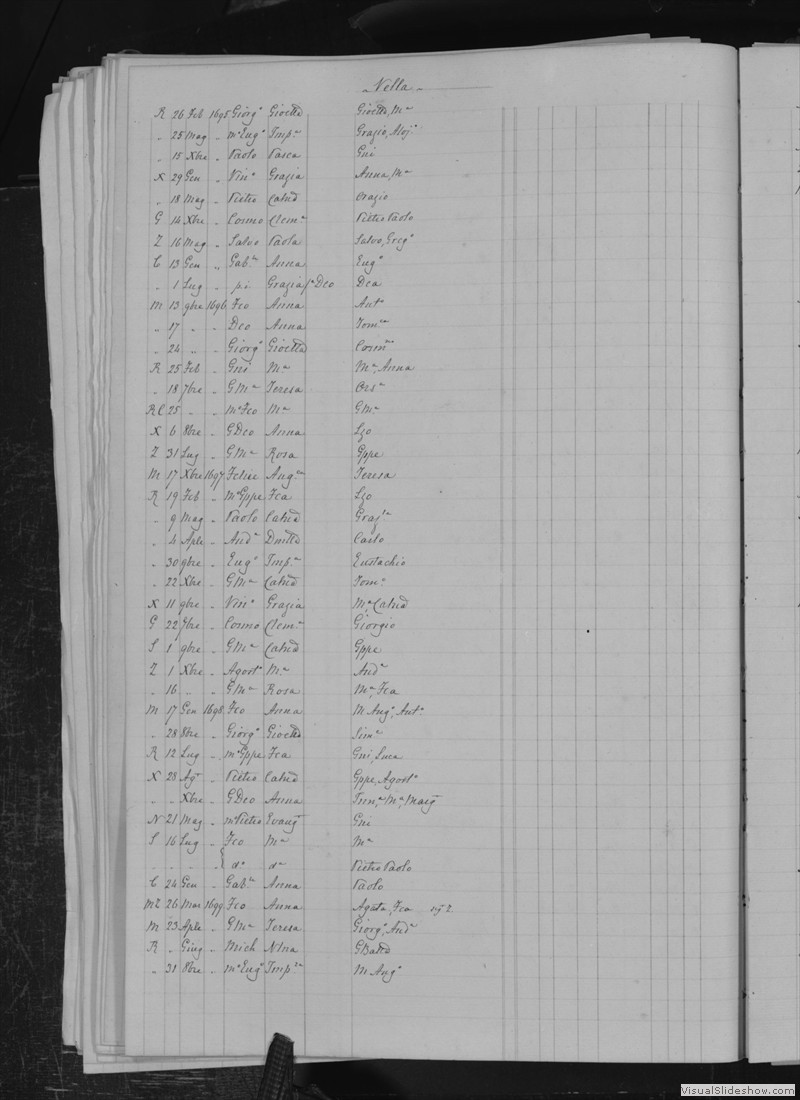 Nella
R 26 Feb 1695 Giorg° Gioetta Gioetta, Ma
" 25 Mag " Mo Eug° Impa Grazio, Aloj°
" 15 Xbre " Paolo Pasca Gni
X 29 Gen " Vin° Grazia Anna, Ma
" 18 Mag " Pietro Catnd Orazio
G 14 Xbre " Cosmo Clema Pietro Paolo
Z 16 Mag " Salvo Paola Salvo, Greg°
C 13 Gen " Gable Anna Eug°
" 1 Lug " pi Grazia/a Deo Dea
M 13 9bre 1696 Fco Anna Anto
" 17 " " Deo Anna Toma
" 24 " " Giorg° Gioetta Cosmo
R 25 Feb " Gni Ma Ma, Anna
" 18 7bre " GMa Teresa Orsa
RC 25 " " Mo Fco Ma GMa
X 6 8bre " GDeo Anna Lzo
Z 31 Lug " GMa Rosa Gppe
M 17 Xbre 1697 Felice Angca Teresa
R 19 Feb " Mo Gppe Fca Lzo
" 9 Mag " Paolo Catnd Grazla
" 4 Aple " Anda Dmtta Carlo
" 30 9bre " Eug° Impa Eustachio
" 22 Xbre " GMa Catnd Toma
X 11 9bre " Vin° Grazia Ma Catnd
G 22 7bre " Cosmo Clema Giorgio
S 1 9bre " GMa Catnd Gppe
Z 1 Xbre " Agosto Ma Anda
" 16 " " GMa Rosa Ma, Fca
M 17 Gen 1698 Fco Anna M Ang°, Anto
" 28 8bre " Giorg° Gioetta Sima
R 12 Lug " Mo Gppe Fca Gni, Luca
X 28 Agt " Pietro Catnd Gppe, Agosto
" " Xbre " GDeo Anna Tnna, Ma, Marg
N 21 Mag " Mo Pietro Evangta Gni
S 16 Lug " Fco Ma Ma
" " " " { do da Pietro Paolo
C 24 Gen " Gable Anna Paolo
MZ 26 Mar 1699 Fco Anna Agata, Fca
M 23 Aple " GMa Teresa Giorg°, Anda
R " Giug " Mich Nina GBatta
" 31 8bre " Mo Eug° Impa M Ang°
VisualSlideshow.com